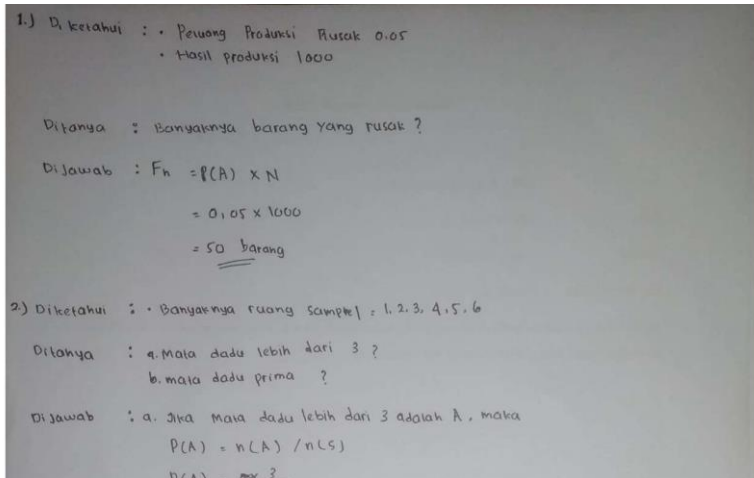 1.) Diketahui : • Peluang Produksi Rusak 0.05
• Hasil produksi 1000
Ditanya : Banyaknya barang yang rusak ?
Dijawab : Fh = P(A) × N
= 0,05 × 1000
= 50 barang
2.) Diketahui : • Banyaknya ruang sampel = 1, 2, 3, 4, 5, 6
Ditanya : a. Mata dadu lebih dari 3 ?
b. mata dadu prima ?
Dijawab : a. Jika Mata dadu lebih dari 3 adalah A, maka
P(A) = n(A) / n(S)